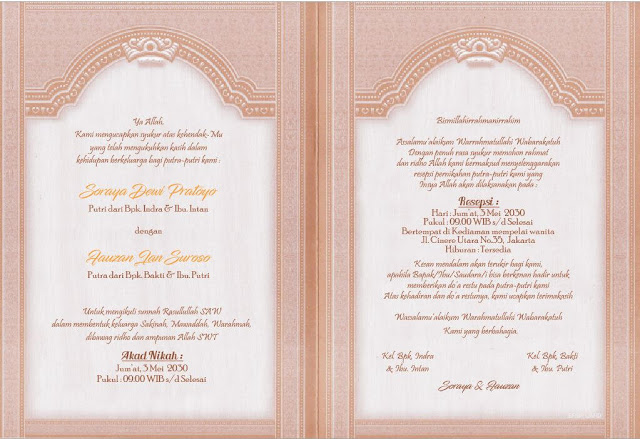 Ya Allah,
Kami mengucapkan syukur atas kehendak-Mu
yang telah mengukuhkan kasih dalam
kehidupan berkeluarga bagi putra-putri kami :
Soraya Dewi Pratoyo
Putri dari Bpk. Indra & Ibu. Intan
dengan
Hauzan Ian Suroso
Putra dari Bpk. Bakti & Ibu. Putri
Untuk mengikuti sunnah Rasullullah SAW
dalam membentuk keluarga Sakinah, Mawaddah, Warahmah,
dibawag ridho dan ampunan Allah SWT
Akad Nikah :
Jum'at, 3 Mei 2030
Pukul : 09.00 WIB s/d Selesai
Bismillahirrahmanirrahim
Assalamu'alaikum Warrahmatullahi Wabarakatuh
Dengan penuh rasa syukur memohon rahmat
dan ridho Allah kami bermaksud menyelenggarakan
resepsi pernikahan putra-putri kami yang
Insya Allah akan dilaksanakan pada :
Resepsi :
Hari : Jum'at, 3 Mei 2030
Pukul : 09.00 WIB s/d Selesai
Bertempat di Kediaman mempelai wanita
Jl. Cinere Utara No.35, Jakarta
Hiburan : Tersedia
Kesan mendalam akan terukir bagi kami,
apabila Bapak/Ibu/Saudara/i bisa berkenan hadir untuk
memberikan do'a restu pada putra-putri kami
Atas kehadiran dan do'a restunya, kami ucapkan terimakasih.
Wassalamu'alaikum Warahmatullahi Wabarakatuh
Kami yang berbahagia.
Kel. Bpk. Indra
& Ibu. Intan
Kel. Bpk. Bakti
& Ibu. Putri
Soraya & Hauzan